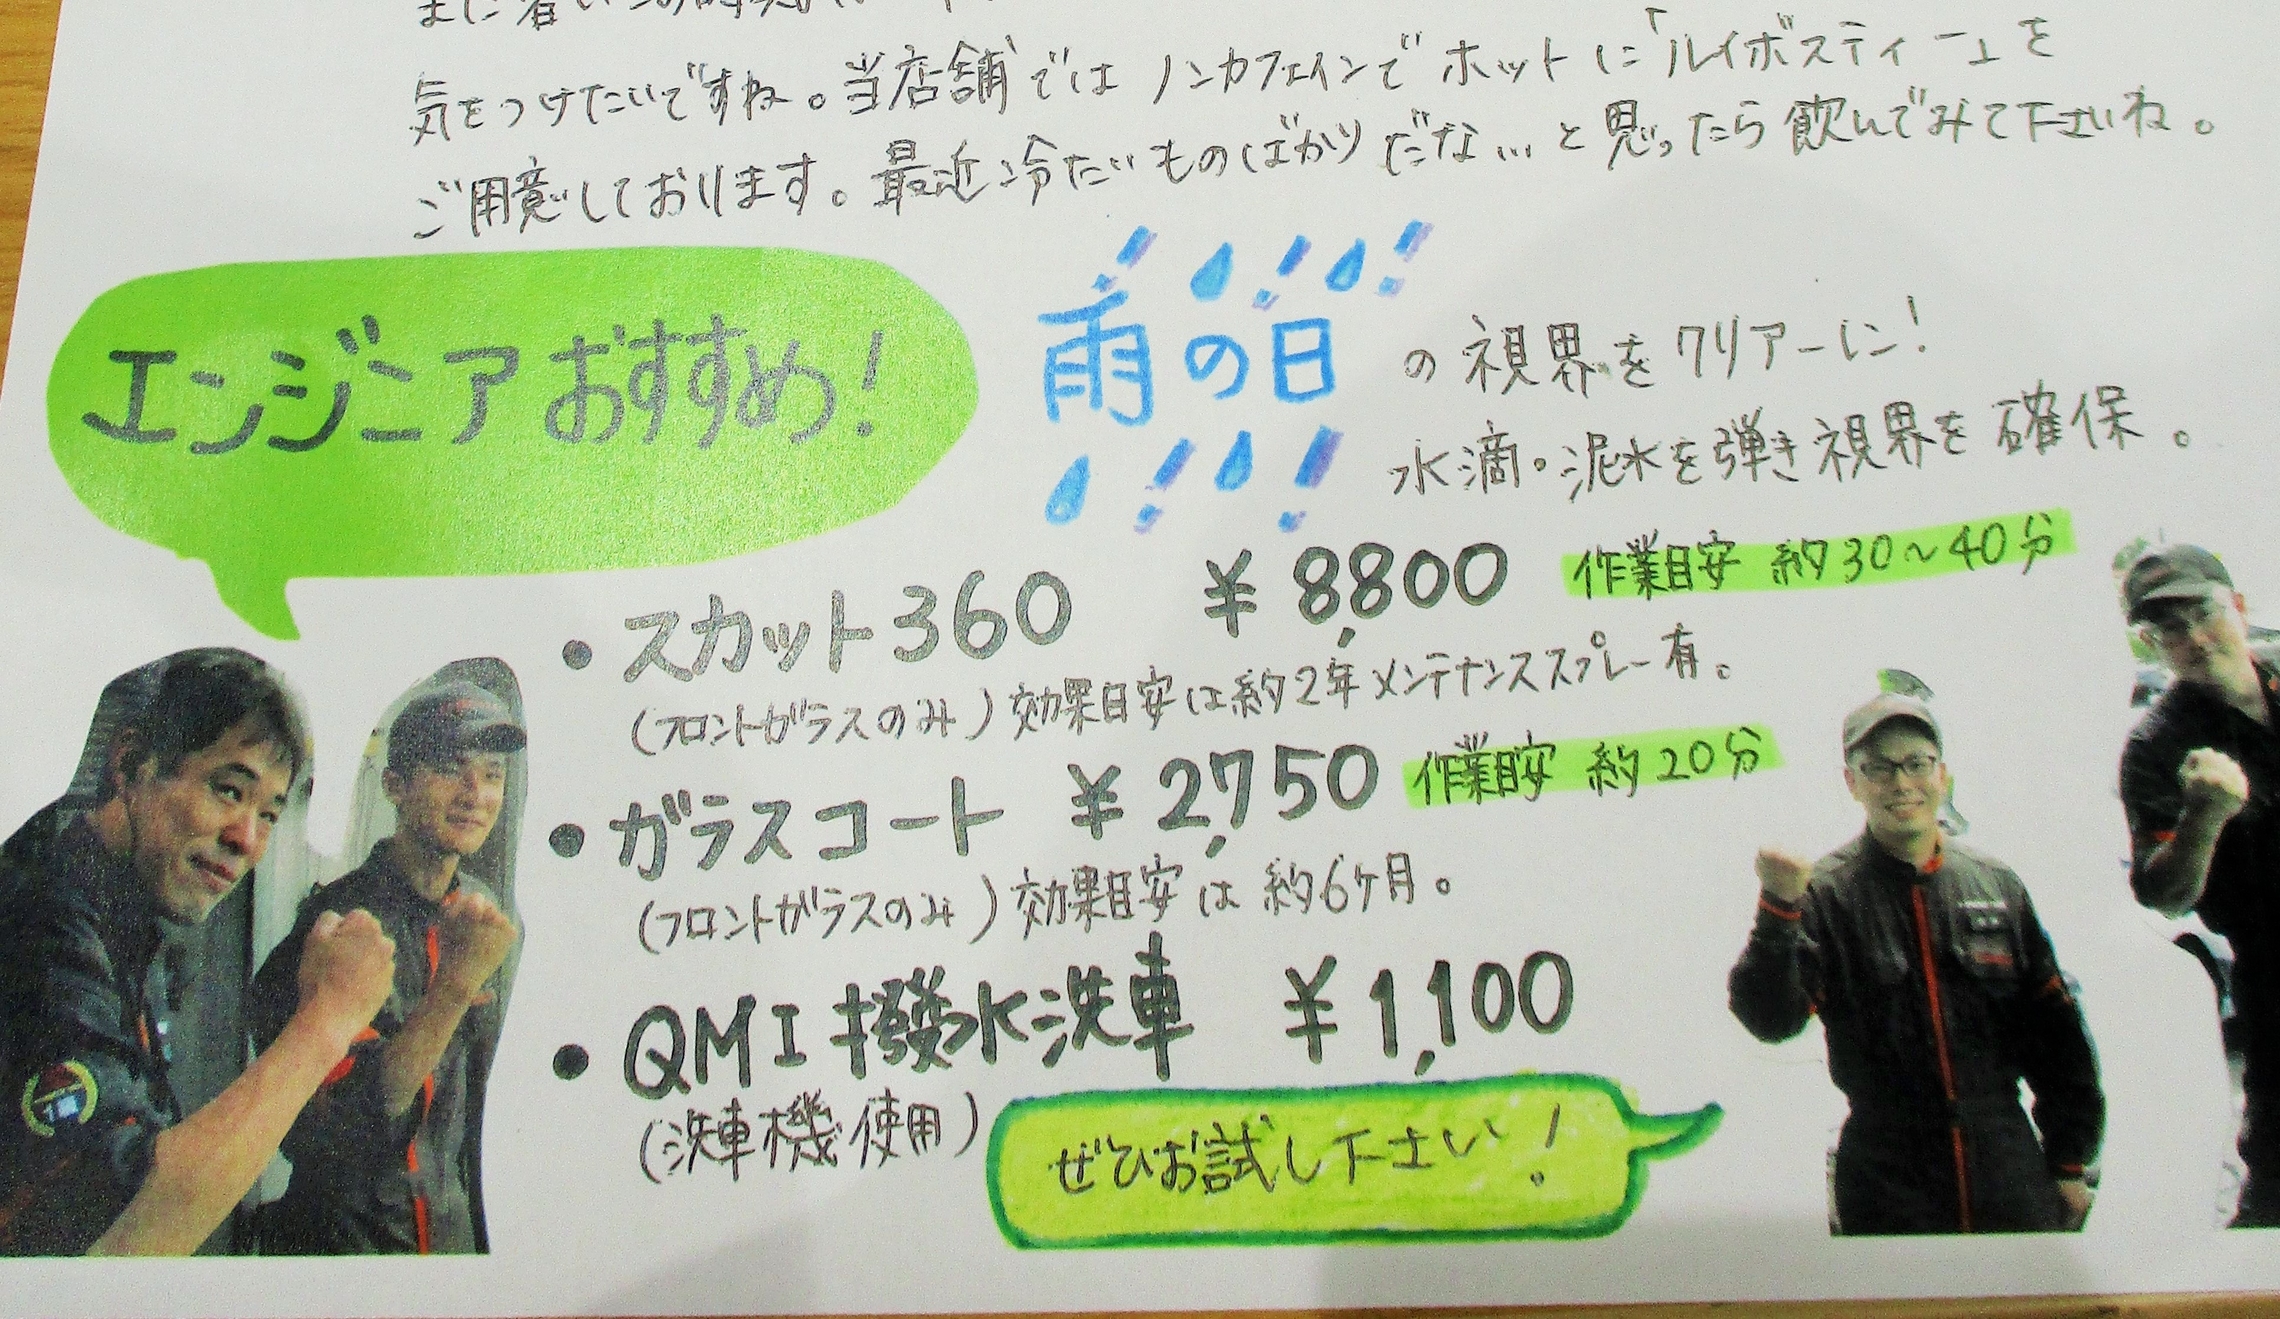 気をつけたいですね。当店舗ではノンカフェインでホットに「ルイボスティー」を
ご用意しております。最近冷たいものばかりだな…と思ったら飲んでみて下さいね。
エンジニアおすすめ!
雨の日の視界をクリアーに!
水滴・泥水を弾き視界を確保。
・スカット360 ¥8,800 作業目安 約30~40分
(フロントガラスのみ)効果目安は約2年メンテナンススプレー有。
・ガラスコート ¥2,750 作業目安 約20分
(フロントガラスのみ)効果目安は約6ヶ月。
・QMI撥水洗車 ¥1,100
(洗車機使用)
ぜひお試し下さい!